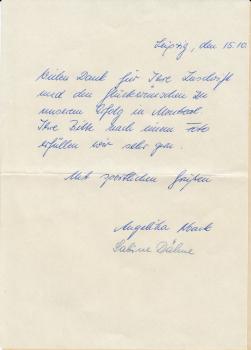 Leipzig, den 15.10.
Vielen Dank für Ihre Zuschrift
und den Glückwünschen zu
unserem Erfolg in Montreal.
Ihre Bitte nach einem Foto
erfüllen wir sehr gern.
Mit sportlichen Grüßen
Angelika Noack
Sabine Dähne